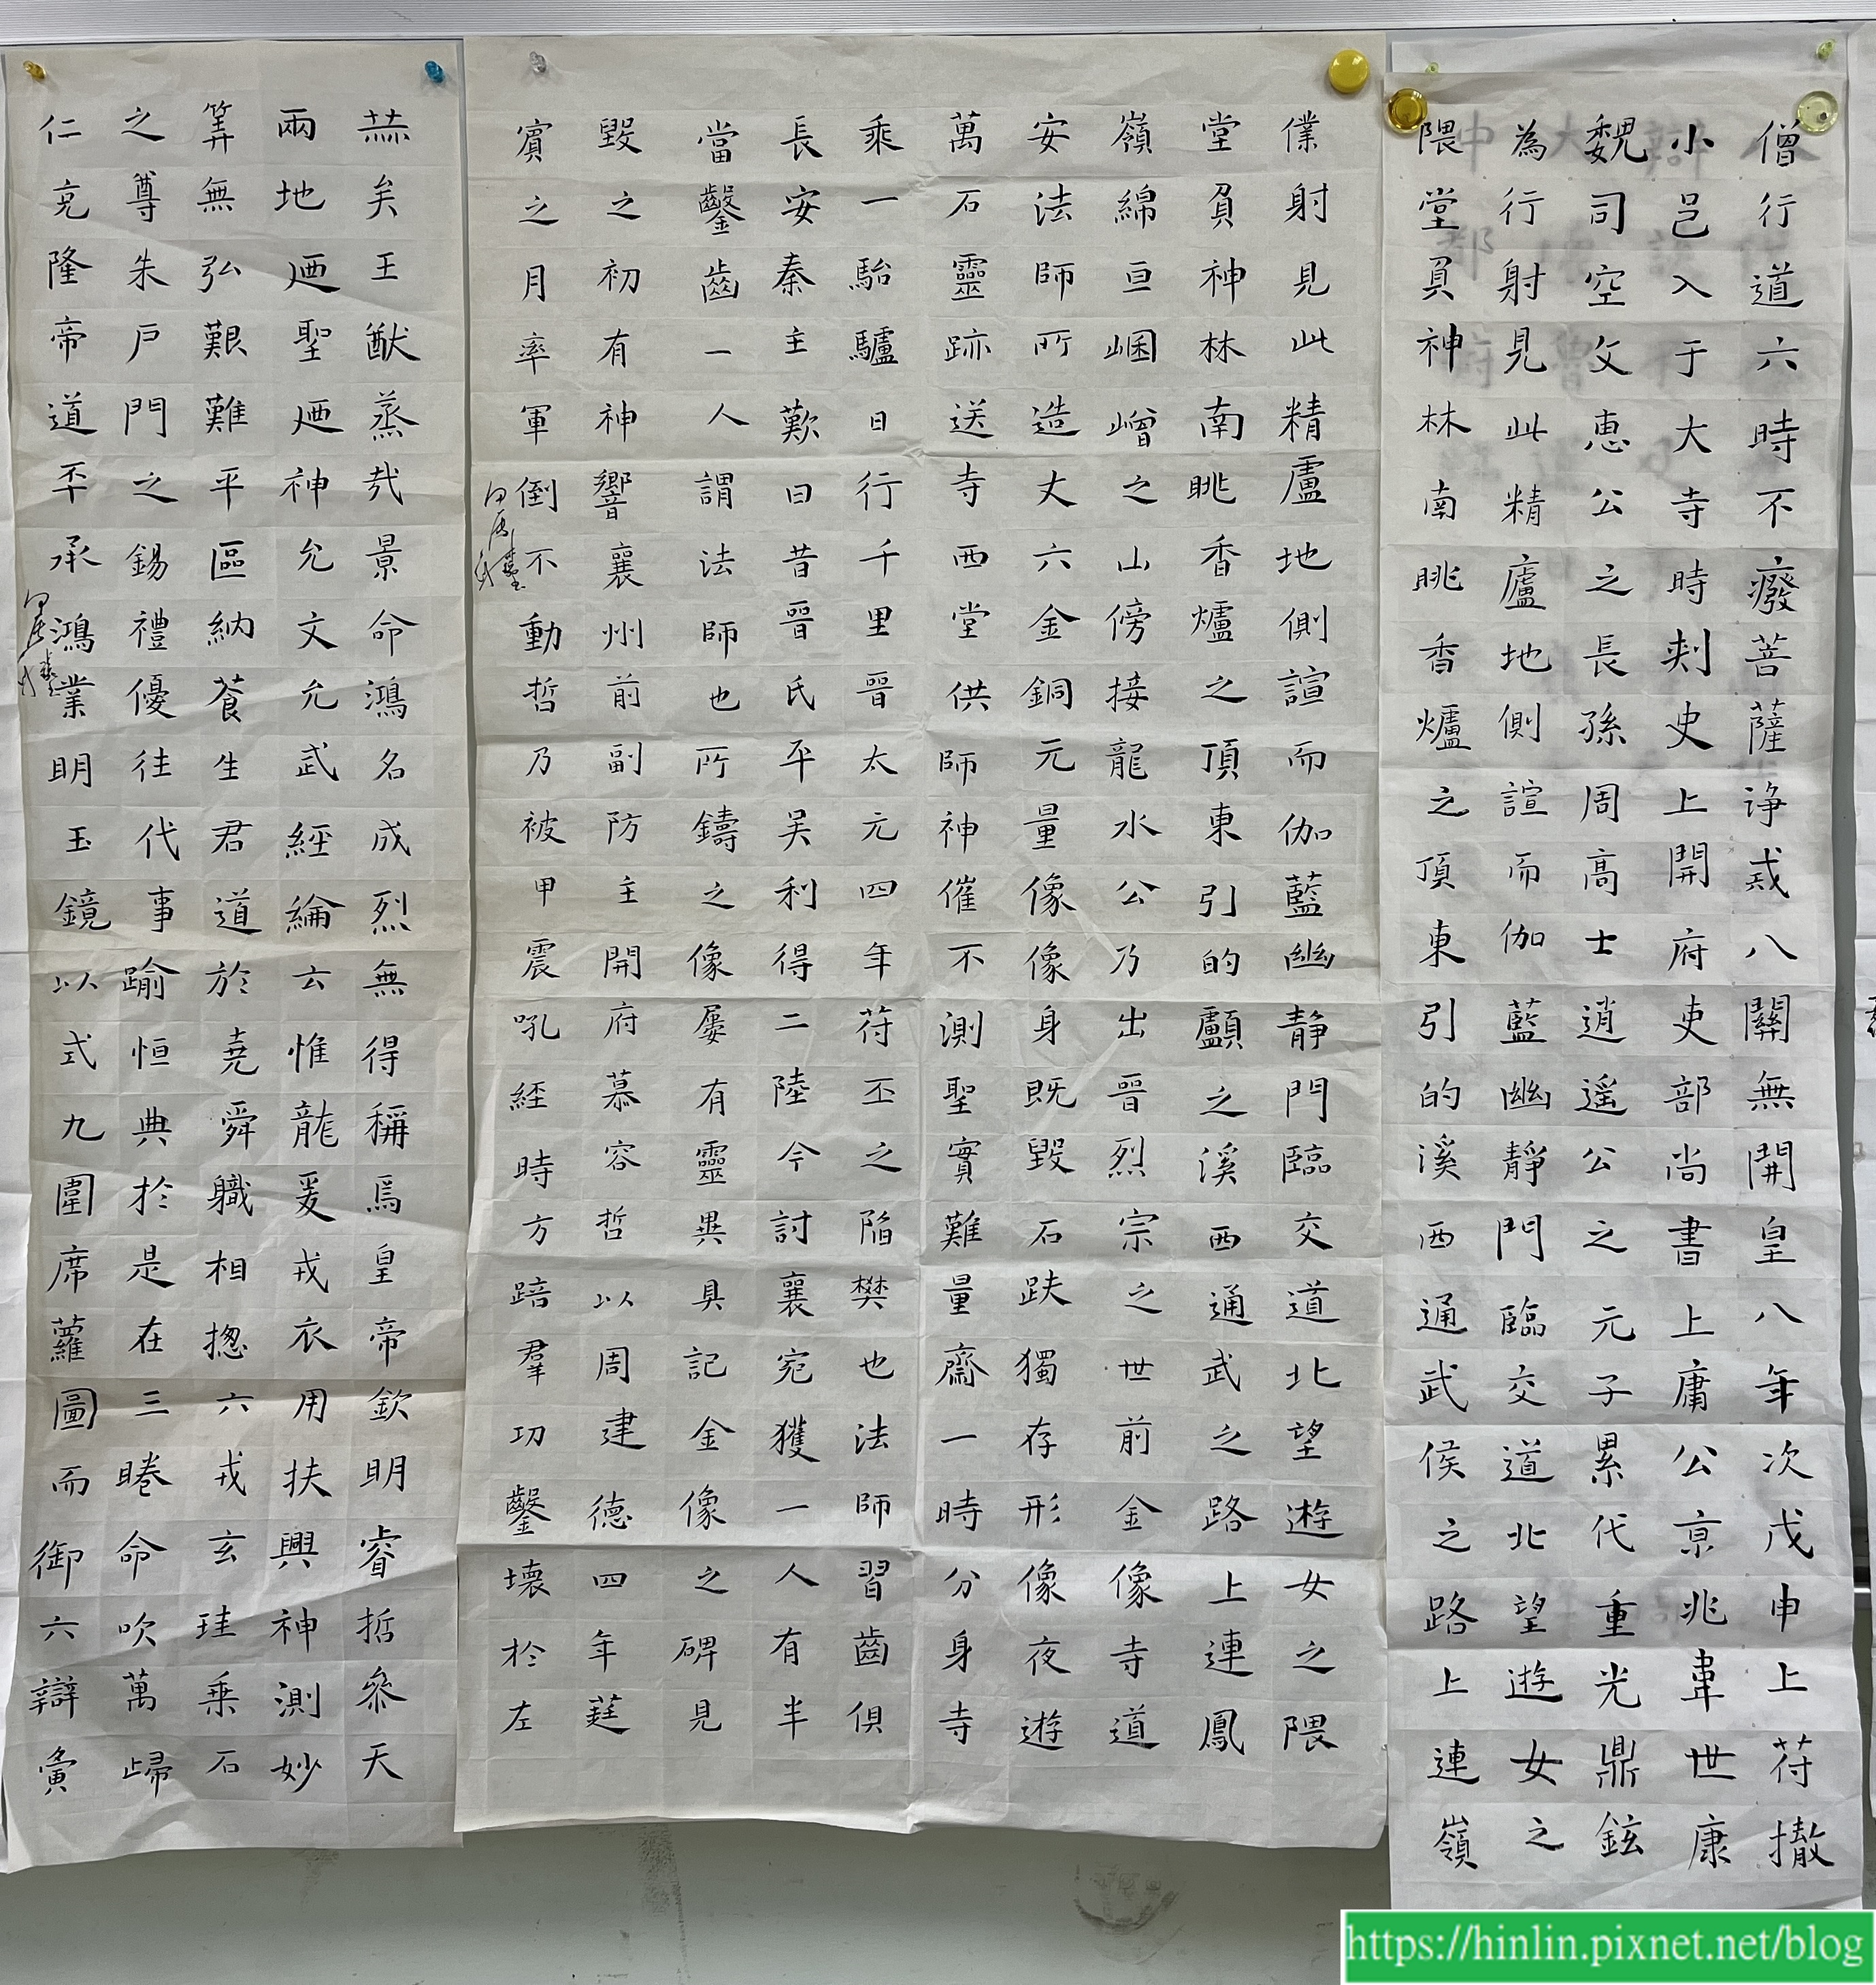 僧行道六時不癈菩薩諍戒八關無開皇八年次戊申上苻撤
小邑入于大寺時刾史上開府吏部尚書上庸公京兆韋世康
魏司空文惠公之長孫周高士逍遥公之元子累代重光鼎鉉
為行射見此精廬地側諠而伽藍幽靜門臨交道北望遊女之
隈堂負神林南眺香爐之頂東引的溪西通武侯之路上連嶺
僕射見此精廬地側諠而伽藍幽静門臨交道北望遊女之隈
堂負神林南眺香爐之頂東引的顱之溪西通武之路上連鳳
嶺綿亘崓嶒之山傍接龍水公乃出晉烈宗之世前金像寺道
安法師所造丈六金銅元量像像身既毀石趺獨存形像夜遊
萬石靈跡送寺西堂供師神催不測聖實難量齋一時分身寺
乘一駘驢日行千里晉太元四年苻丕之陷樊也法師習齒俱
長安秦主歎曰昔晉氏平吴利得二陸今討襄宛獲一人有半
當鑿齒一人謂法師也所鑄之像屢有靈異具記金像之碑見
毀之初有神響襄州前副防主開府慕容哲以周建德四年莛
賓之月率軍倒不動哲乃被甲震吼經時方踣羣功鑿壞於左
赫矣王猷蒸哉景命鴻名成烈無得稱焉皇帝欽明睿哲叅天
兩地廼聖廼神允文允武經綸云惟龍爰戎衣用扶興神測妙
筭無弘艱難平區納蒼生君道於堯舜職相揔六戎玄珪乘石
之尊朱戶門之錫禮優往代事踰恒典於是在三睠命吹萬歸
仁克隆帝道丕承鴻業明玉鏡以式九圍席蘿圖而御六辯寅
https://hinlin.pixnet.net/blog